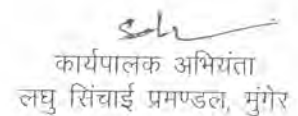 कार्यपालक अभियंता
लघु सिंचाई प्रमण्डल, मुंगेर